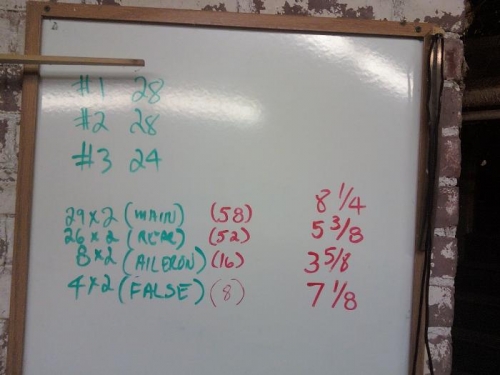 #1 28
#2 28
#3 24
29x2 (MAIN) (58) 8 1/4
26x2 (REAR) (52) 5 3/8
8x2 (AILERON) (16) 3 5/8
4x2 (FALSE) (8) 7 1/8